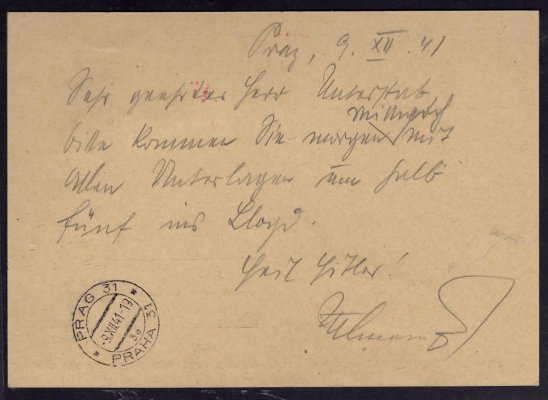 Prag, 9. XII. 41
Sehr geehrter Herr Unterstab
Mittwoch
bitte kommen Sie morgen mit
allen Unterlagen um halb
fünf ins Lloyd.
Heil Hitler!
PRAG 31
9.XII.41-19
3a
PRAHA 31